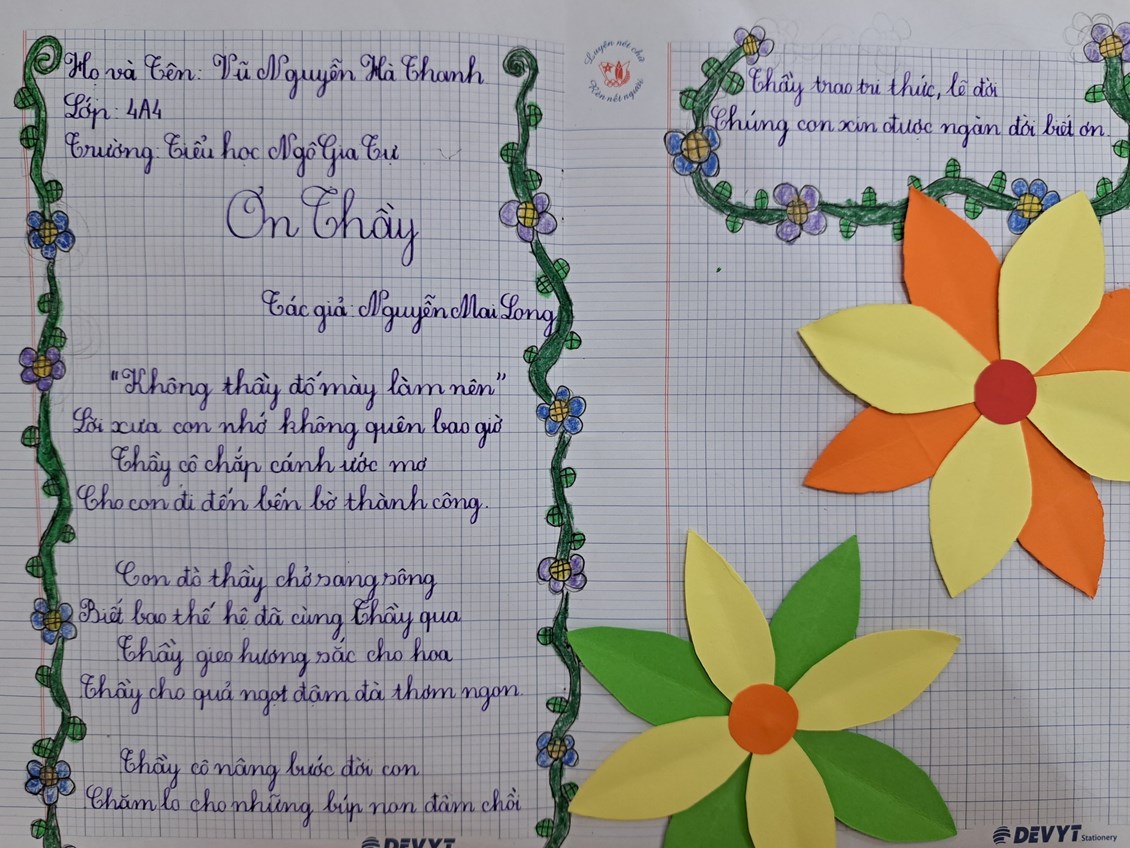 Họ và Tên: Vũ Nguyễn Hà Thanh
Lớp: 4A4
Trường: Tiểu học Ngô Gia Tự
Ơn Thầy
Tác giả: Nguyễn Mai Long
"Không thầy đố mày làm nên"
Lời xưa con nhớ không quên bao giờ
Thầy cô chắp cánh ước mơ
Cho con đi đến bến bờ thành công.
Con đò thầy chở sang sông
Biết bao thế hệ đã cùng Thầy qua
Thầy gieo hương sắc cho hoa
Thầy cho quả ngọt đậm đà thơm ngon.
Thầy cô nâng bước đời con
Chăm lo cho những búp non đâm chồi
DEVYT
Luyện nét chữ
Rèn nết người
Thầy trao tri thức, lẽ đời
Chúng con xin được ngàn đời biết ơn.
DEVYT Stationery